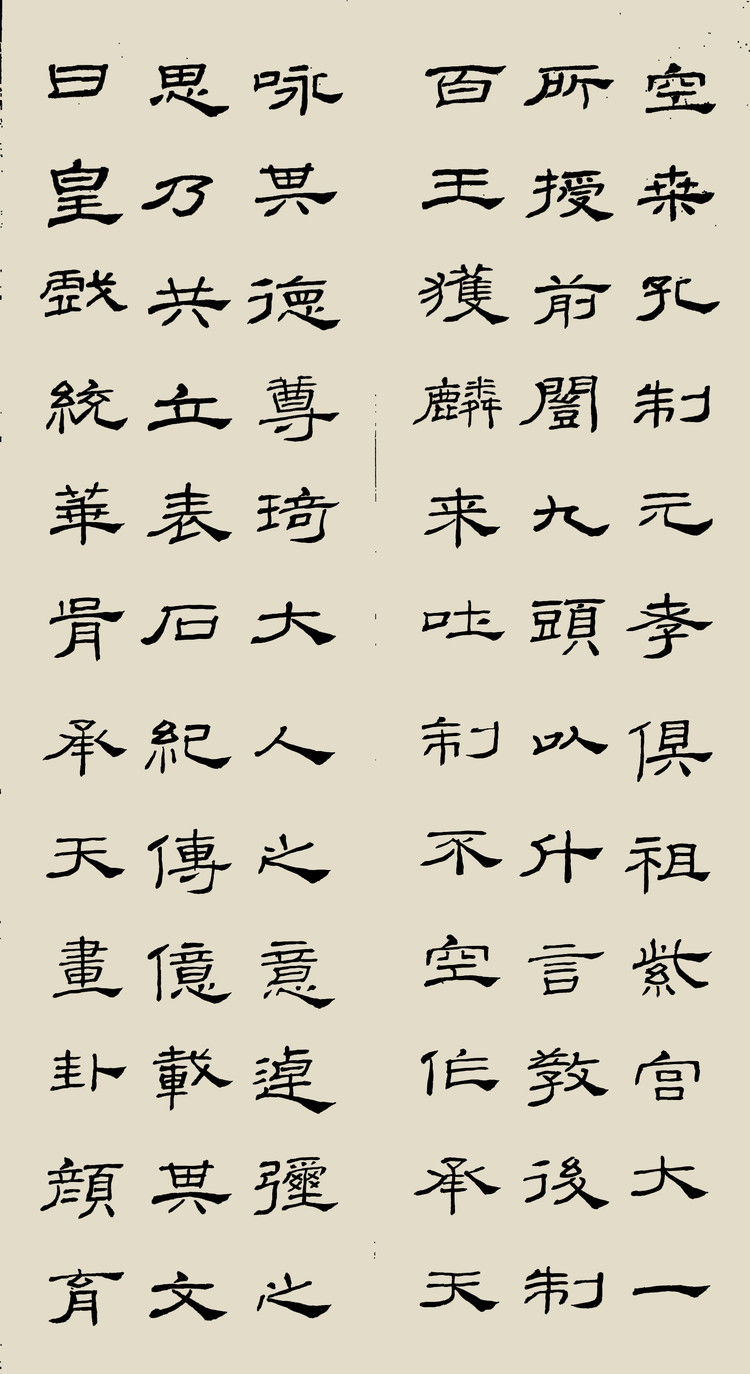 空桒孔制元孝俱祖紫宫大一
所授前闓九頭以什言教後制
百王獲麟来吐制不空作承天
咏其德尊琦大人之意逴彌之
思乃共立表石紀傳億載其文
曰皇戲統華胥承天畫卦顔育